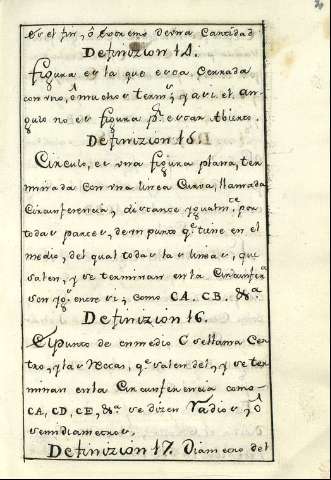 es el fin, ó Extremo de una Cantidad
Definizion 14.
Figura es la que esta Cerrada
con uno, ó muchos termos, y asi el an-
gulo no es figura pr. estar Abierto.
Definizion 15.
Circulo, es una figura plana, ter
minada con una linea Curva, llamada
Circunferencia, y distante ygualmte. por
todas partes, de un punto qe. tiene en el
medio, del qual todas las lineas, que
salen, y se terminan en la Circunferª
son ygs. entre si; como CA. CB. &ª.
Definizion 16.
El punto de en medio C se llama Cen
tro, y las Rectas, qe. salen del, y se ter
minan en la Circunferencia como
CA, CD, CE, &ª se dizen Radios, ó
semidiametros.
Definizion 17. Diametro del